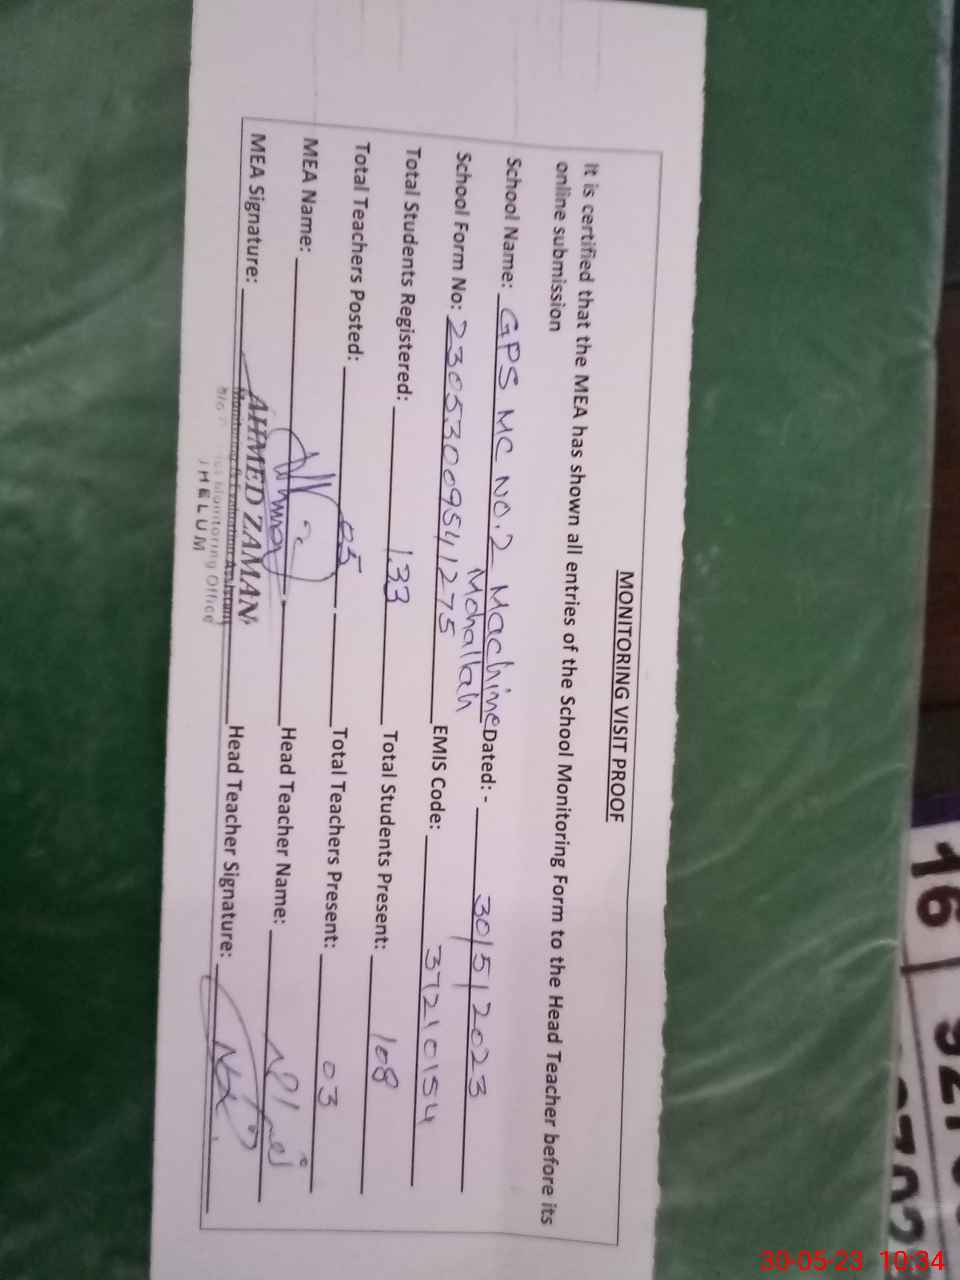 MONITORING VISIT PROOF
It is certified that the MEA has shown all entries of the School Monitoring Form to the Head Teacher before its
online submission
School Name: GPS MC NO.2 Machine Mohallah Dated: - 30/5/2023
School Form No: 23053009541275 EMIS Code: 37210154
Total Students Registered: 133 Total Students Present: 108
Total Teachers Posted: 05 Total Teachers Present: 03
MEA Name: Head Teacher Name:
MEA Signature: Head Teacher Signature:
AHMED ZAMAN
Monitoring & Evaluation Assistant
Monitoring Office
JHELUM
16
30-05-23 10:34